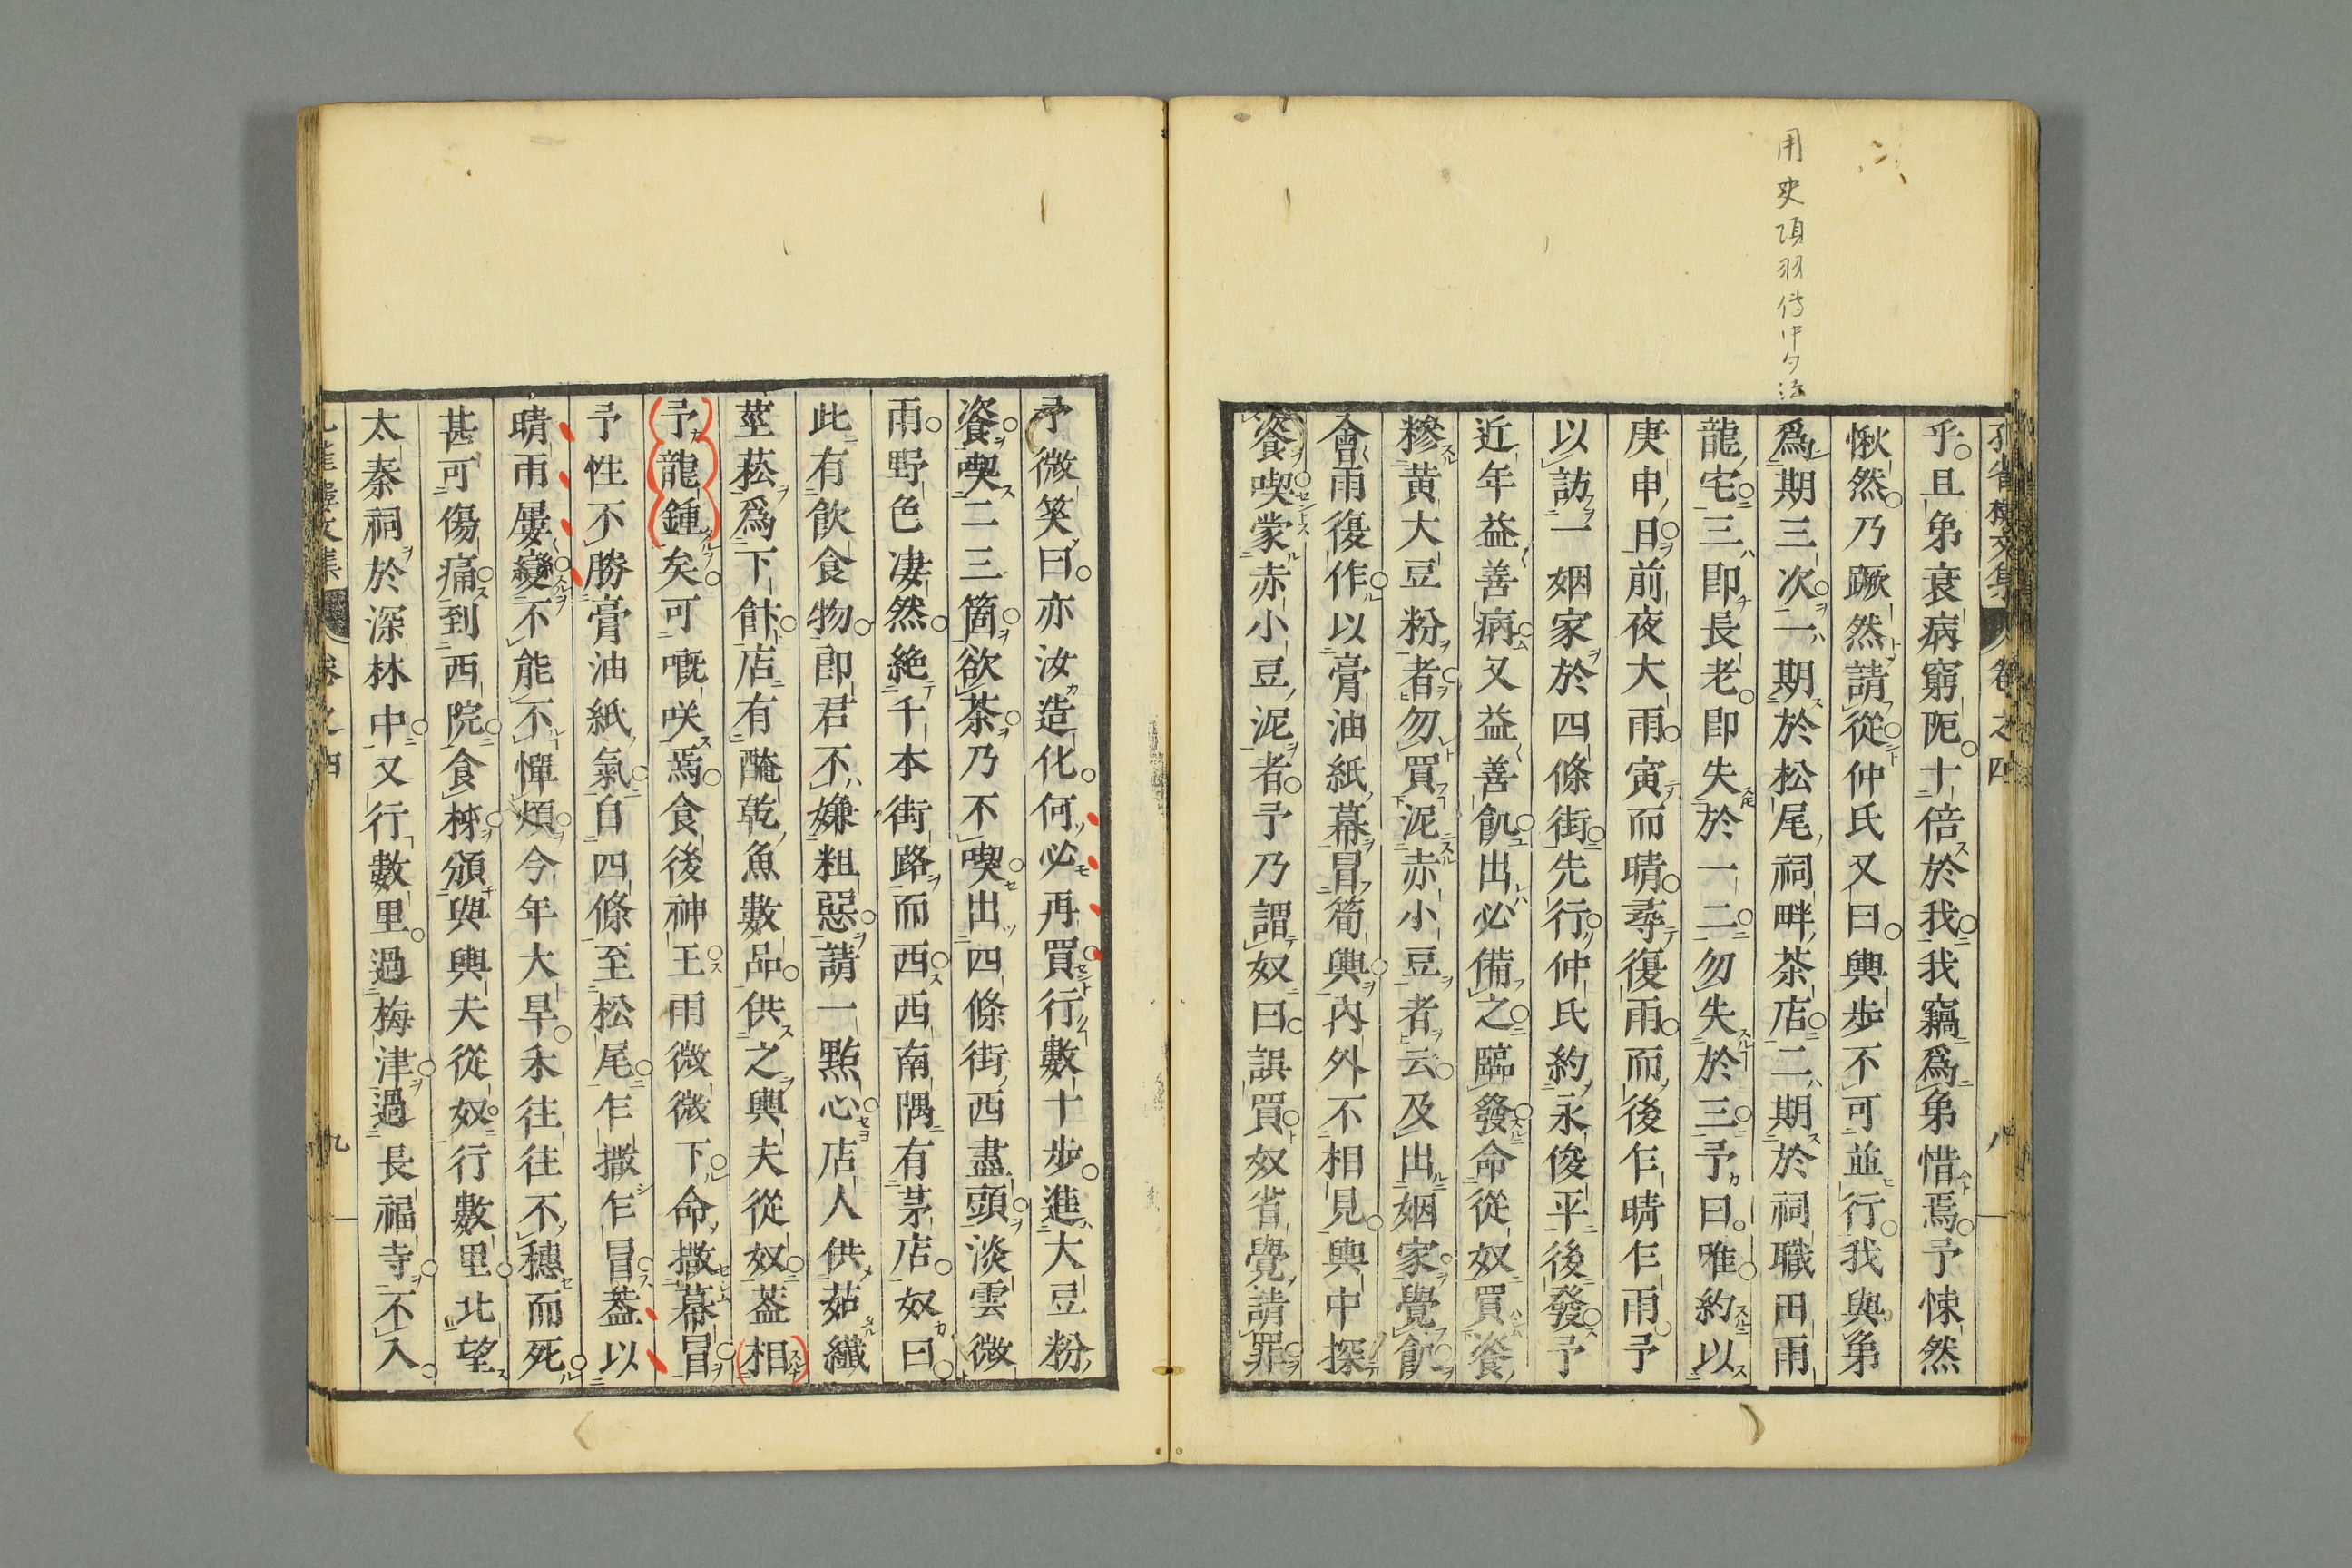 用史項羽傳中句法
孔雀樓文集
卷之四
八
乎且弟衰病窮阨十倍於我我竊爲弟惜焉予悚然
愀然乃蹶然請從仲氏又曰輿歩不可並行我與弟
爲期三次一期於松尾祠畔茶店二期於祠職田雨
龍宅三即長老即失於一二勿失於三予曰唯約以
庚申日前夜大雨寅而晴尋復雨而後乍晴乍雨予
以訪一姻家於四條街先行仲氏約永俊平後發予
近年益善病又益善飢出必備之臨發命從奴買餈
糝黄大豆粉者勿買泥赤小豆者云及出姻家覺飢
會雨復作以膏油紙幕冒筍輿内外不相見輿中探
餈喫蒙赤小豆泥者予乃謂奴曰誤買奴省覺請罪
予微笑曰亦汝造化何必再買行數十歩進大豆粉
餈喫二三箇欲茶乃不喫出四條街西盡頭淡雲微
雨野色凄然絶千本街路而西西南隅有茅店奴曰
此有飲食物即君不嫌粗惡請一㸃心店人供茹纖
莖菘爲下飰店有醃乾魚數品供之輿夫從奴葢相
予龍鍾矣可嘅咲焉食後神王雨微微下命撒幕冒
予性不勝膏油紙氣自四條至松尾乍撒乍冒葢以
晴雨屢變不能不憚煩今年大旱禾往往不穗而死
甚可傷痛到西院食𥹥頒與輿夫從奴行數里北望
太秦祠於深林中又行數里過梅津過長福寺不入
卷之四
九